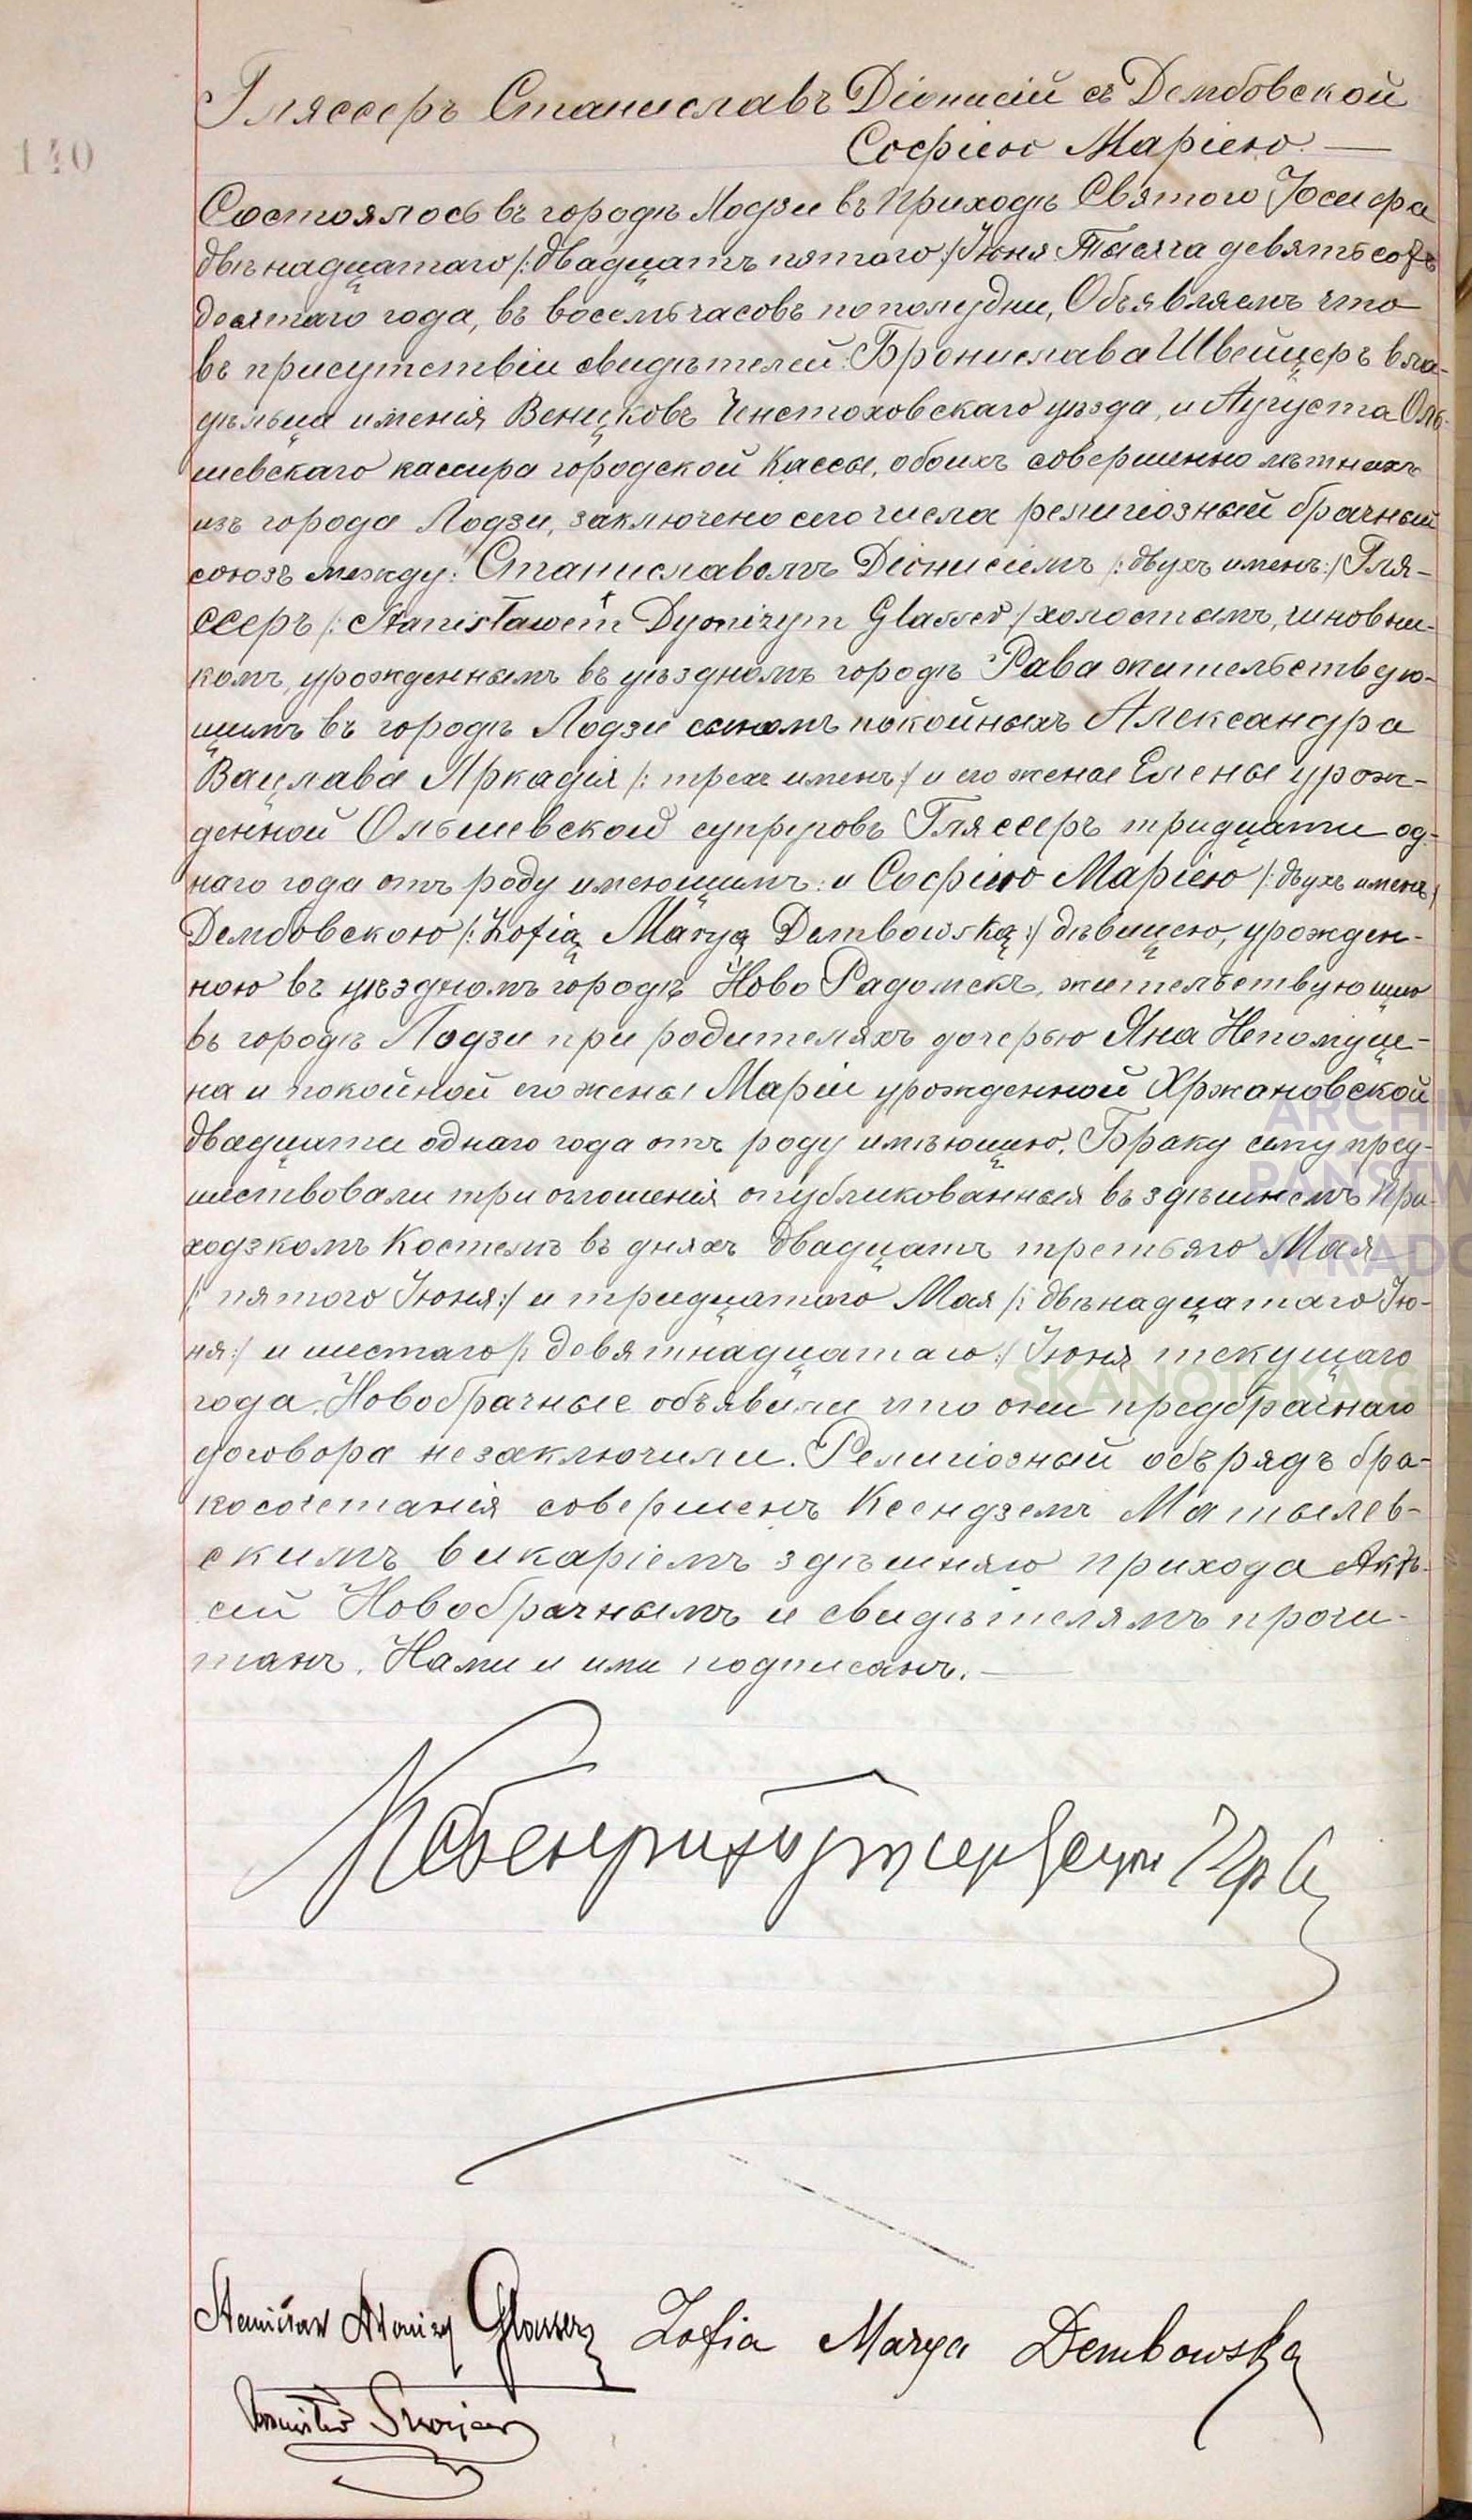 140
Глясеръ Станиславъ Діонисій съ Дембовской
Софіею Маріею. —
Состоялось въ городѣ Лодзи въ Приходѣ Святого Іосифа
двѣнадцатаго /: двадцать пятого :/ Іюня Тысяча девятьсотъ
десятаго года, въ восемь часовъ пополудни, Объявляемъ что
въ присутствіи свидѣтелей: Бронислава Швейцеръ вла-
дѣльца именія Венцковъ Ченстоховскаго уѣзда, и Августа Оль-
шевскаго кассира городской Кассы, обоихъ совершеннолѣтнихъ
изъ города Лодзи, заключено сего числа религіозный брачный
союзъ между: Станиславомъ Діонисіемъ /: двухъ именъ :/ Гля-
ссеръ /: Stanisławem Dyonizym Glasser / холостымъ, чиновни-
комъ, урожденнымъ въ уѣздномъ городѣ Рава жительствую-
щимъ въ городѣ Лодзи сыномъ покойныхъ Александра
Вацлава Аркадія /: трехъ именъ :/ и его жены Елены урож-
денной Ольшевской супруговъ Глясееръ тридцати од-
наго года отъ роду имеющимъ: и Софіею Маріею /: двухъ именъ /
Дембовскою /: Zofią Maryą Dembowską :/ дѣвицею, урожден-
ною въ уѣздномъ городѣ Ново Радомскъ, жительствующю
въ городѣ Лодзи при родителяхъ дочерью Яна Непомуце-
на и покойной его жены Маріи урожденной Хржановской
двадцати однаго года отъ роду имѣющию. Браку сему пред-
шествовали три оглошенія опубликованныя въ здѣшнемъ При-
ходзкомъ Костелѣ въ дняхъ двадцать третьяго Мая
/: пятого Іюня :/ и тридцатаго Мая /: двѣнадцатаго Ію-
ня :/ и шестаго /: девятнадцатаго :/ Іюня текущаго
года. Новобрачные объявили что они предбрачнаго
договора незаключили. Религіозный обърядъ бра-
косочетанія совершенъ Ксендземъ Матылев-
скимъ викаріемъ здѣшняго прихода Актъ
сей Новобрачнымъ и свидѣтелямъ прочи-
танъ. Нами и ими подписанъ. —
Stanisław Dyonizy Glasser Zofia Marya Dembowska
ARCHIW
PAŃSTW
W RADO
SKANOTEKA GE